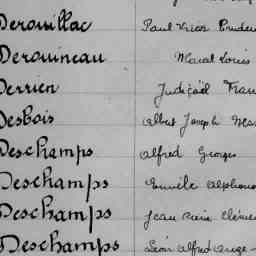 Derouillac Paul Victor Pruden
Derouineau Marcel Louis
Derrien Judicaël Fran
Desbois Albert Joseph Ma
Deschamps Alfred Georges
Deschamps Emile Alphons
Deschamps Jean Pierre Clémen
Deschamps Léon Alfred Ange